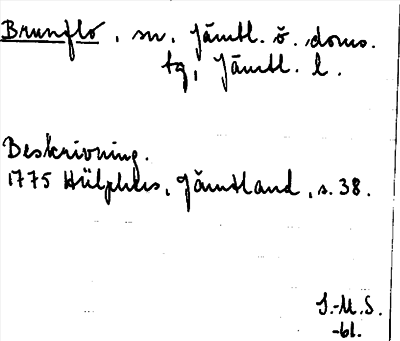 Brunflo, sn. Jämtl. ö. doms.
tg, Jämtl. l.
Beskrivning.
1775 Hülphers, Jämtland, s. 38.
J.-M.S.
-bl.